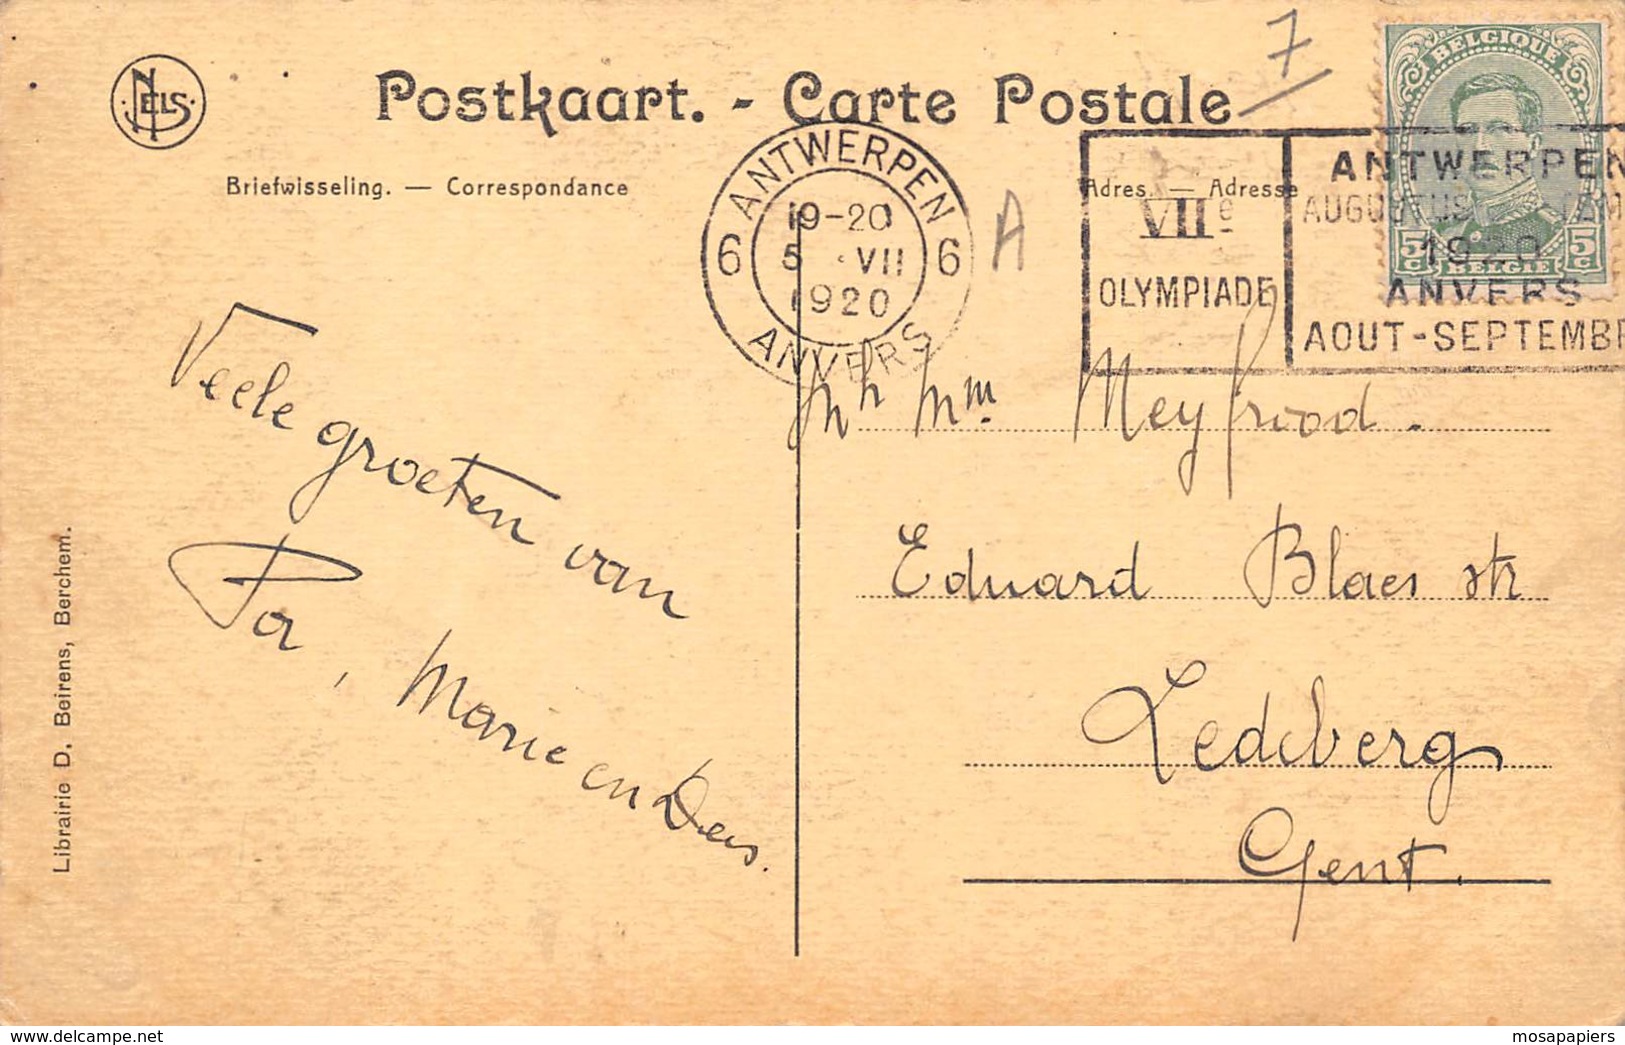 NELS
Postkaart. - Carte Postale
7
Briefwisseling. — Correspondance
Adres. — Adresse
ANTWERPEN
6 6
19-20
5 VII
1920
ANVERS
A
VIIe
OLYMPIADE
ANTWERPEN
1920
ANVERS
AOUT-SEPTEMB
BELGIQUE
5c 5c
BELGIË
Veele groeten van
Pa, Marie en
Mh Mm Meyfrood.
Eduard Blaes str
Ledeberg
Gent.
Librairie D. Beirens, Berchem.
delcampe.net
mosapapiers